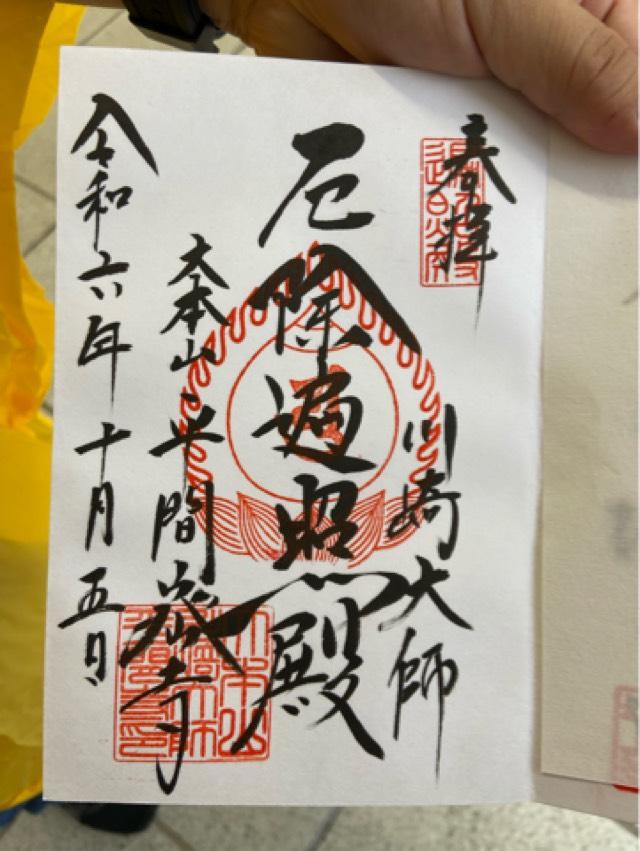 奉拝
川崎大師
厄除遍照殿
大本山平間寺
令和六年十月五日